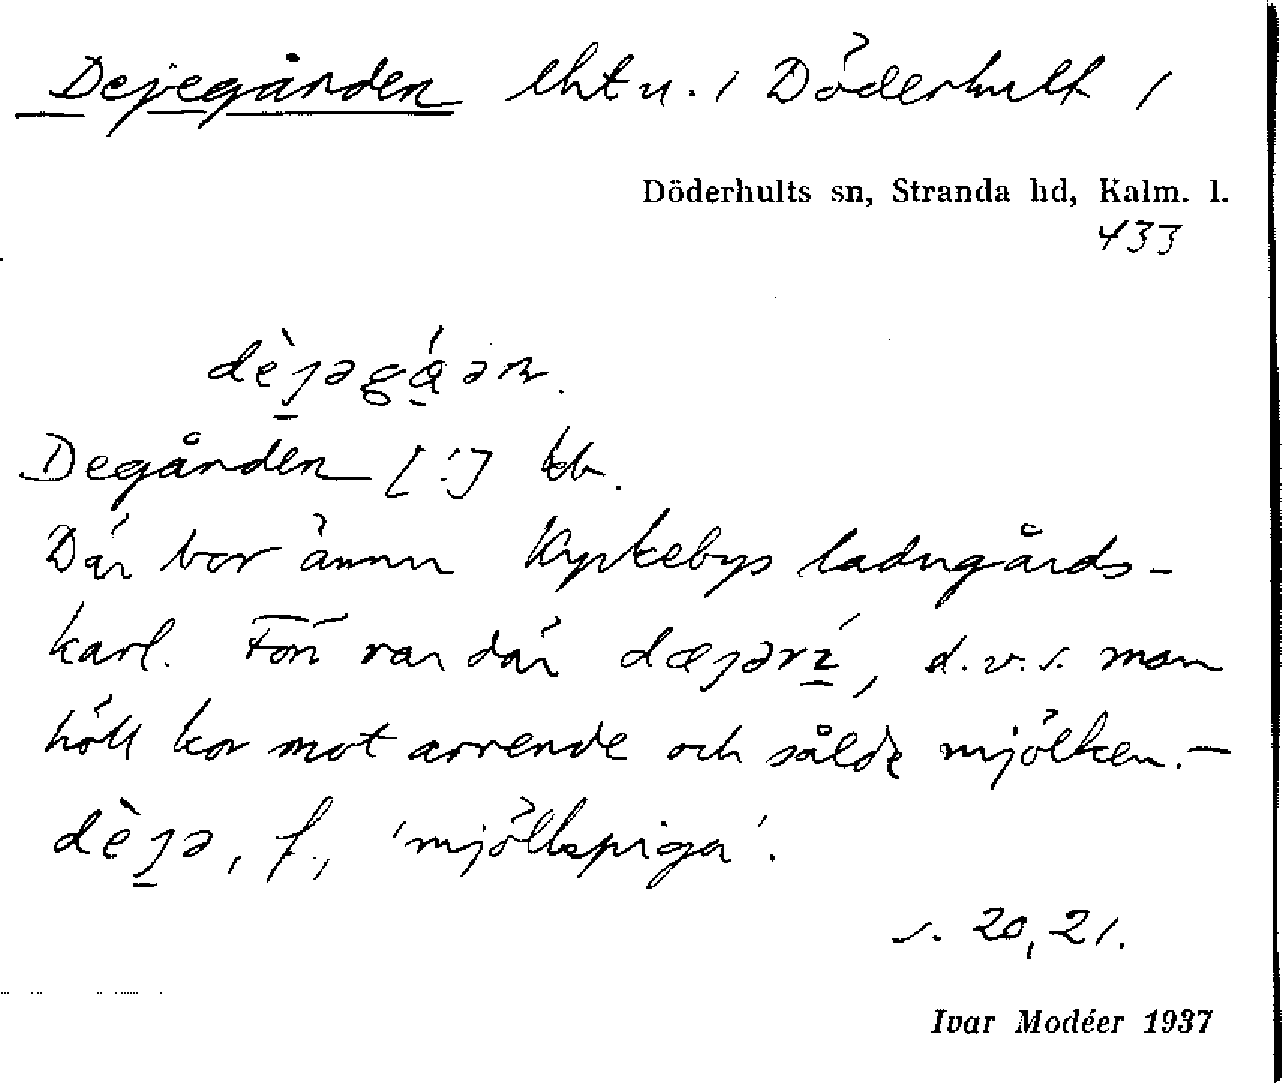 Dejegården lht u. / Döderhult /
Döderhults sn, Stranda hd, Kalm. l.
433
dèȷəgá̱ən.
Degården [!] kb.
Där bor ännu Kyrkebys ladugårds-
karl. Förr var där dæȷərí, d.v.s. man
höll kor mot arrende och sålde mjölken. –
dèȷə, f., 'mjölkpiga'.
s. 20, 21.
Ivar Modéer 1937